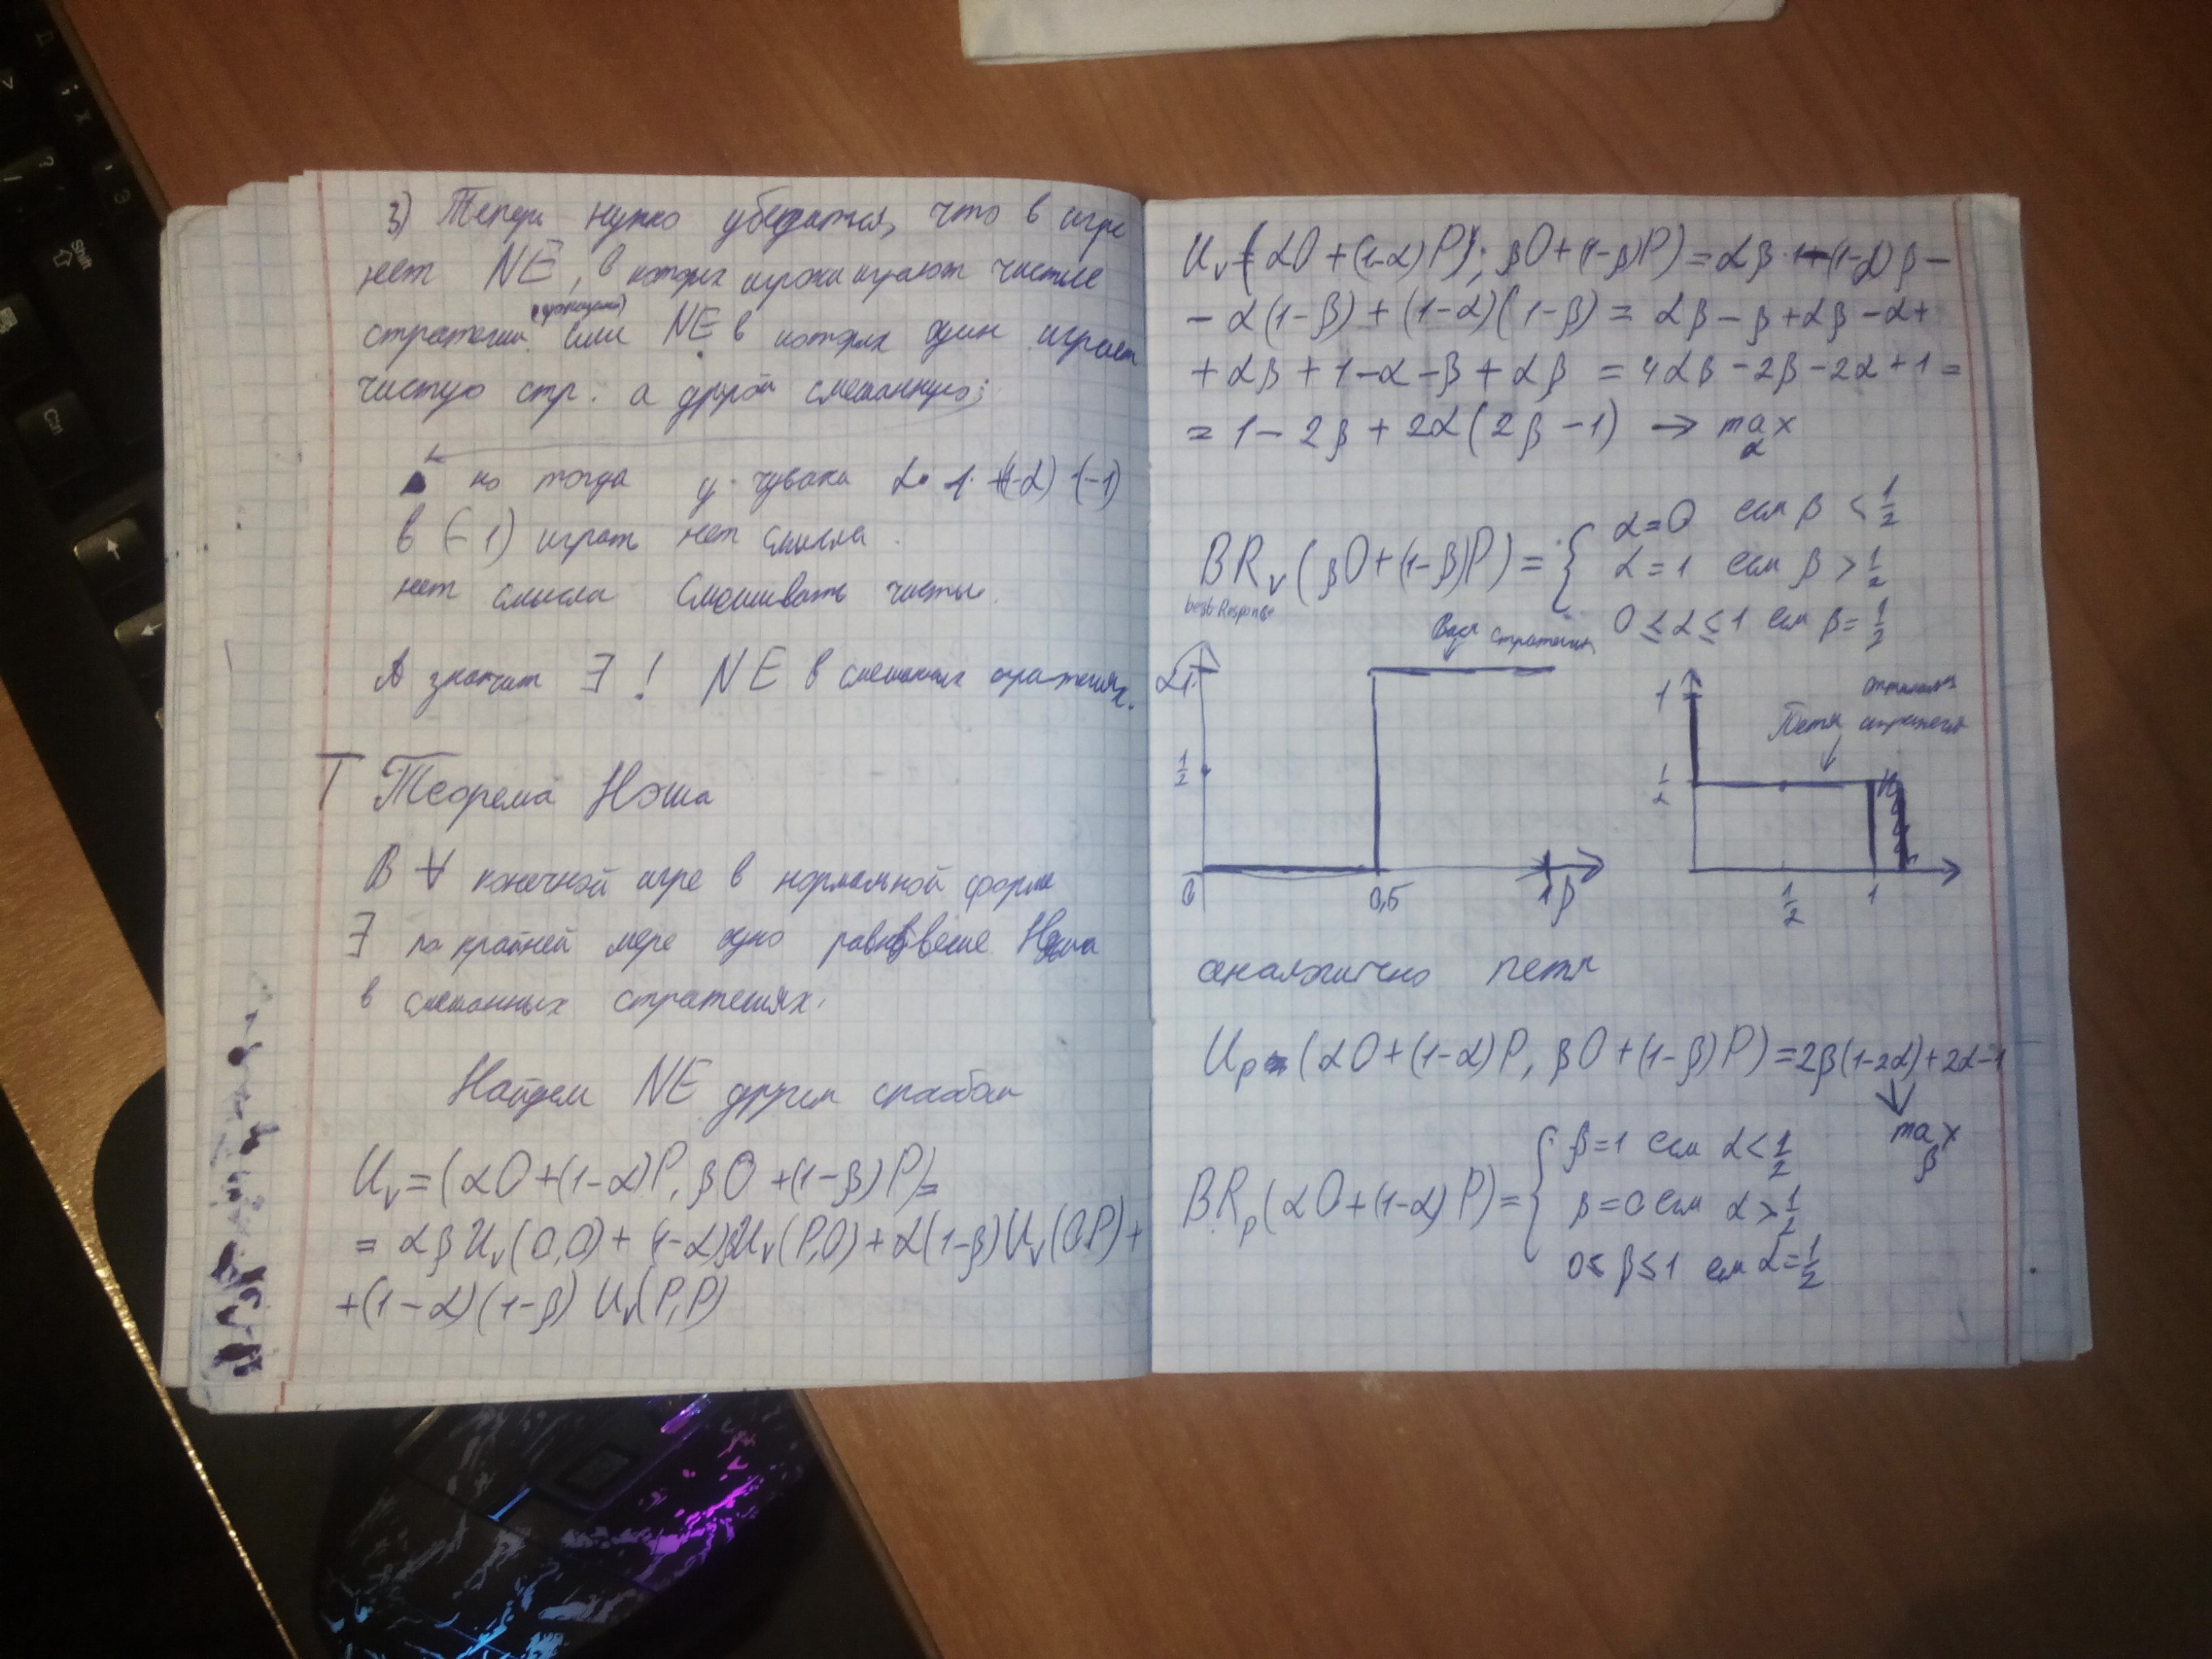 3) Теперь нужно убедиться, что в игре
нет NE, в которых игроки играют чистые
стратегии или NE в которых один играет
чистую стр. а другой смешанную;
но тогда у чувака α · 1 · (1-α) · (-1)
в (-1) играть нет смысла.
нет смысла смешивать чистые.
А значит ∃ ! NE в смешаных стратегиях.
Т Теорема Нэша
В ∀ конечной игре в нормальной форме
∃ по крайней мере одно равновесие Нэша
в смешанных стратегиях.
Найдем NE другим способом
Uᵥ = (αO + (1-α)P, βO + (1-β)P) =
= αβ Uᵥ(O,O) + (1-α)βUᵥ(P,O) + α(1-β)Uᵥ(O,P) +
+ (1-α)(1-β) Uᵥ(P,P)
Uᵥ(αO + (1-α)P; βO + (1-β)P) = αβ·1 - (1-α)β -
- α(1-β) + (1-α)(1-β) = αβ - β + αβ - α +
+ αβ + 1 - α - β + αβ = 4αβ - 2β - 2α + 1 =
= 1 - 2β + 2α(2β - 1) → max
α
α = 0 если β < 1/2
BRᵥ(βO + (1-β)P) = { α = 1 если β > 1/2
best Response
0 ≤ α ≤ 1 если β = 1/2
Вася стратегия
α 1
1/2
0 0,5 1 β
1
Петя стратегия
1/2
1/2 1
аналогично Петя
Uₚ (αO + (1-α)P, βO + (1-β)P) = 2β(1-2α) + 2α-1
max
β
β = 1 если α < 1/2
BRₚ(αO + (1-α)P) = { β = 0 если α > 1/2
0 ≤ β ≤ 1 если α = 1/2
; ж
? /
Э
Shift
Ctrl